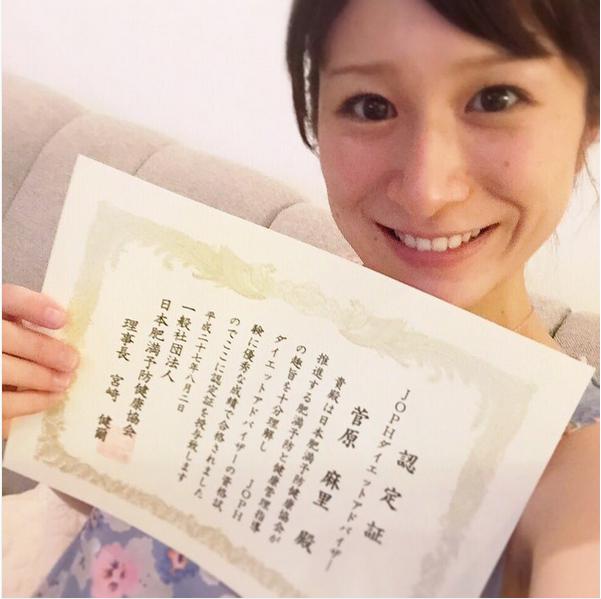 認定証
JOPHダイエットアドバイザー
菅原　麻里　殿
貴殿は日本肥満予防健康協会が
推進する肥満予防と健康管理指導
の趣旨を十分理解し　JOPH
ダイエットアドバイザーの資格試
験に優秀な成績で合格されました
のでここに認定証を授与致します
平成二十七年八月二日
一般社団法人
日本肥満予防健康協会
理事長　宮崎　健爾